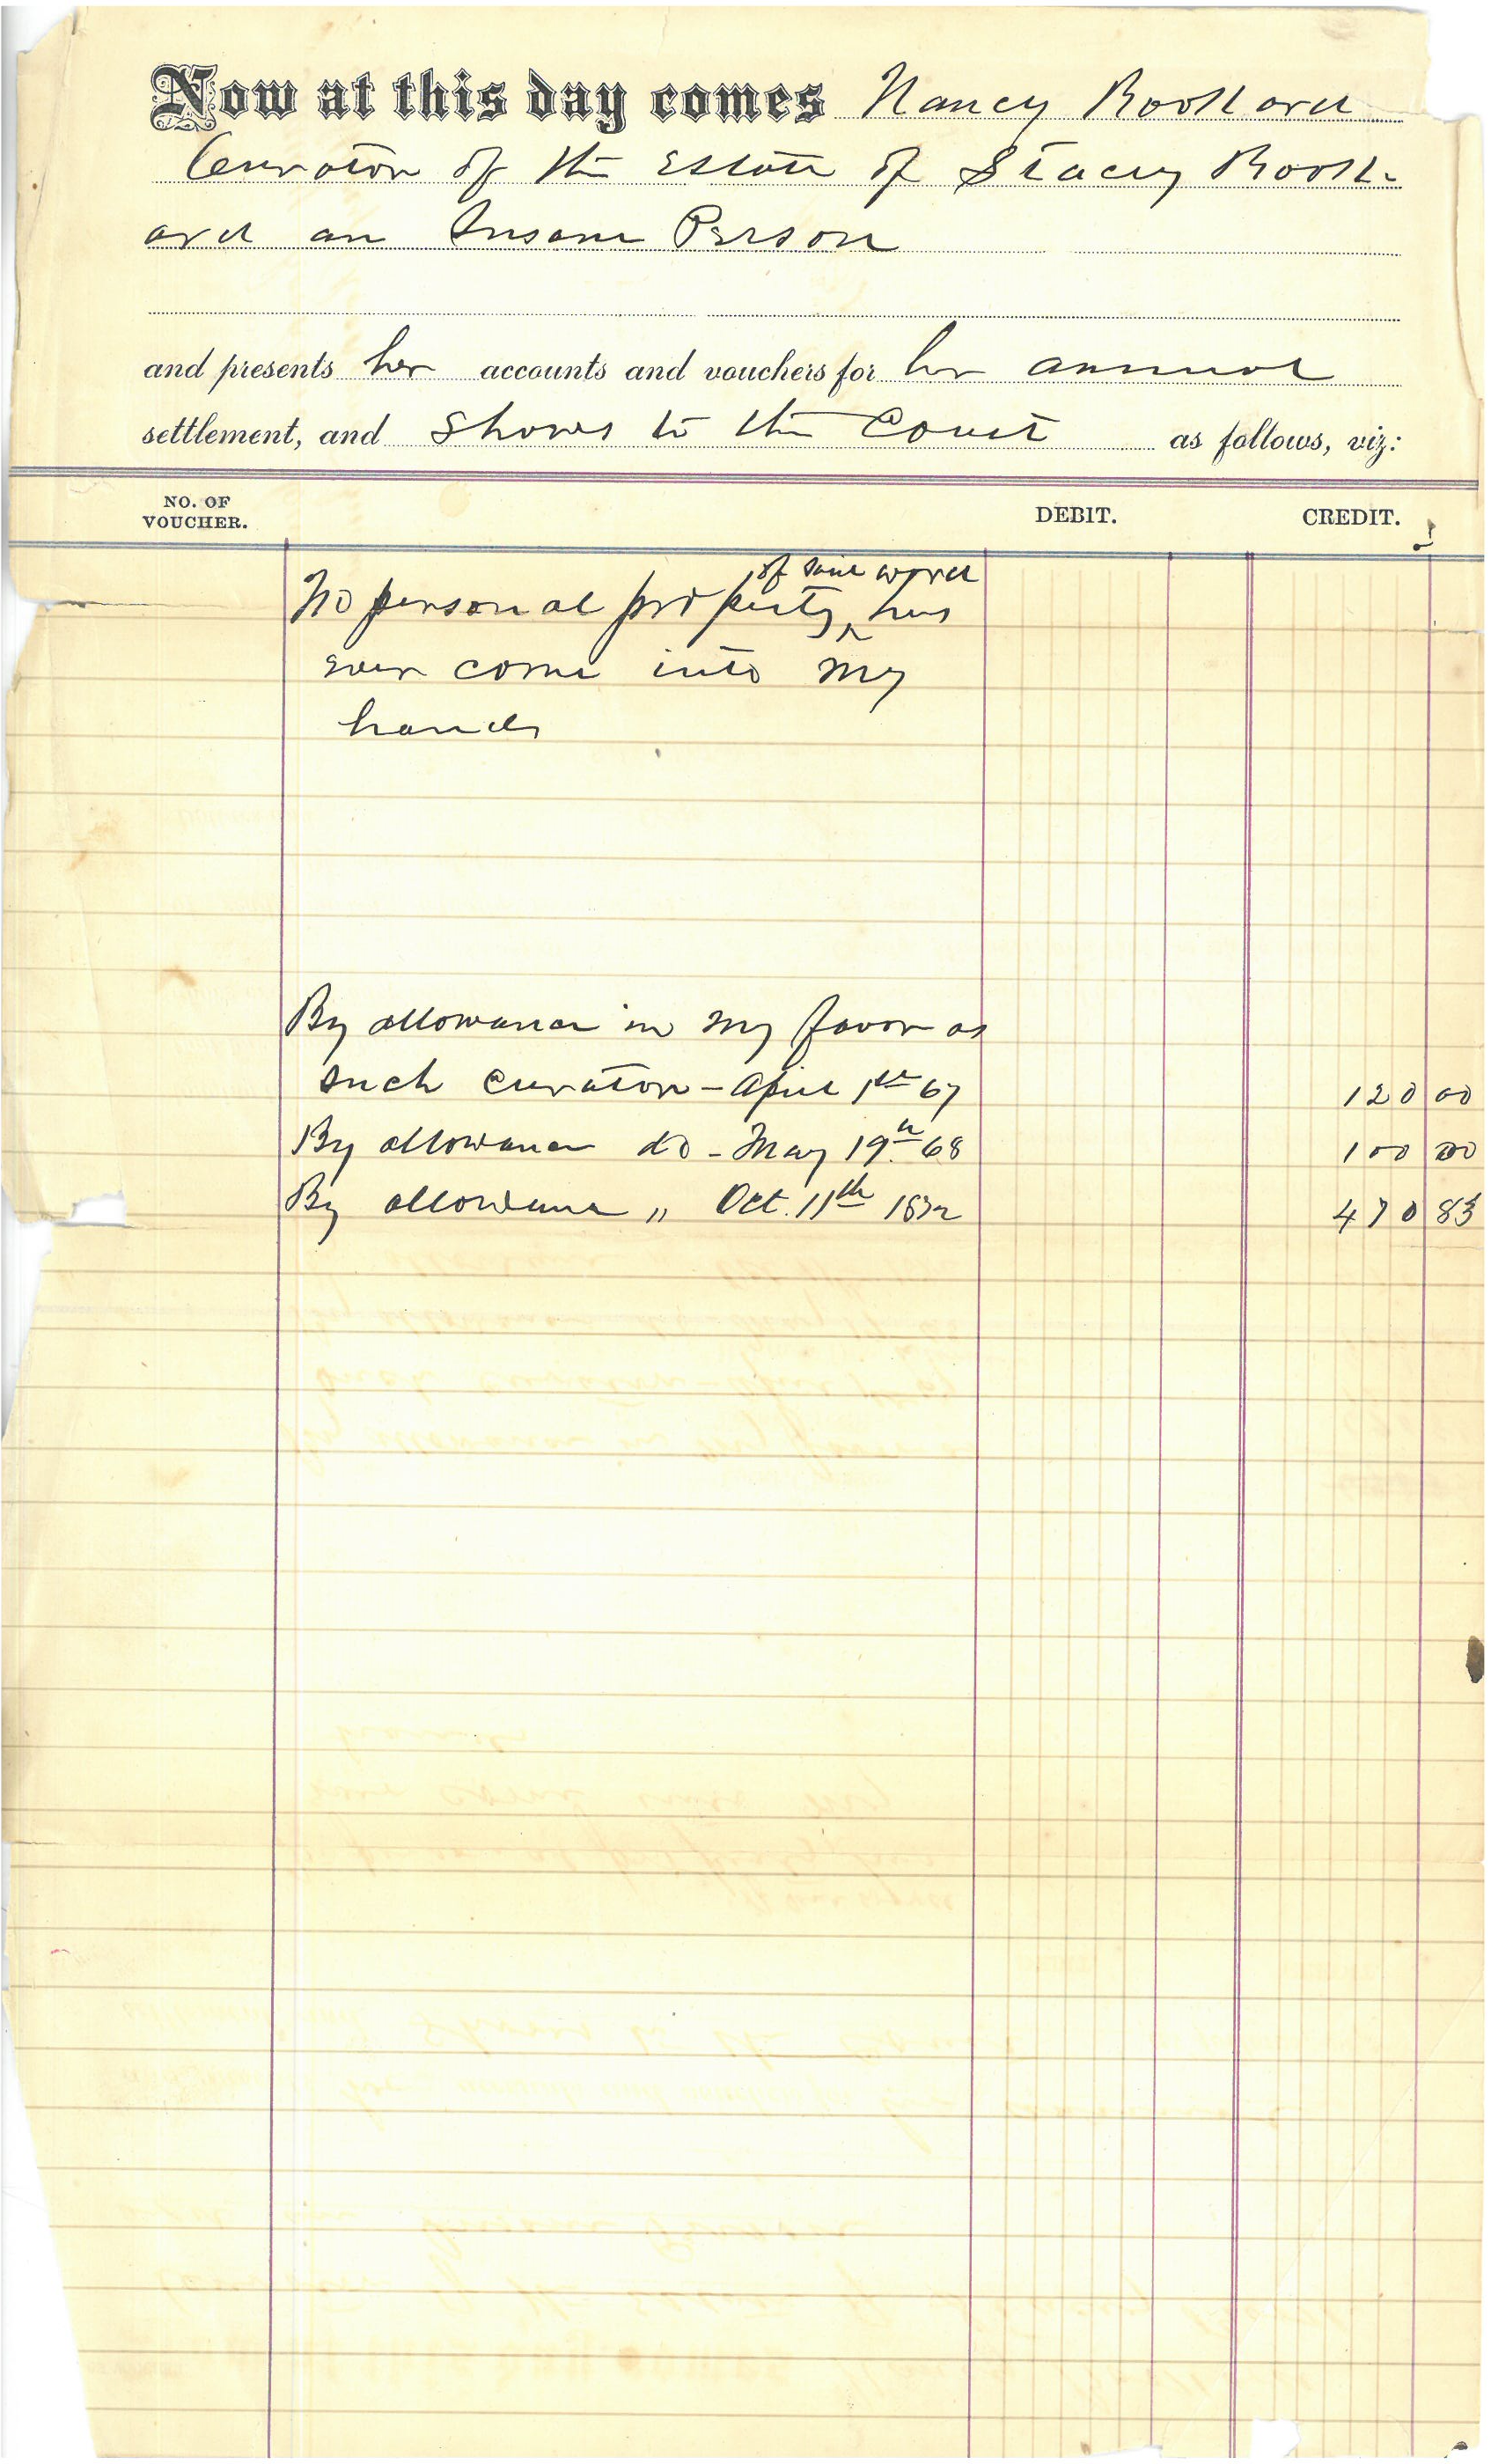 Now at this day comes Nancy Rookard
Curator of the Estate of Stacey Rook-
ard an Insane Person
and presents her accounts and vouchers for her annual
settlement, and Shows to the Court as follows, viz:
NO. OF VOUCHER. DEBIT. CREDIT.
of said ward
No personal property, has
ever come into my
hands
By allowance in my favor as
such curator – April 1st 67 120 00
By allowance do – May 19th 68 100 00
By allowance „ Oct. 11th 1872 470 83